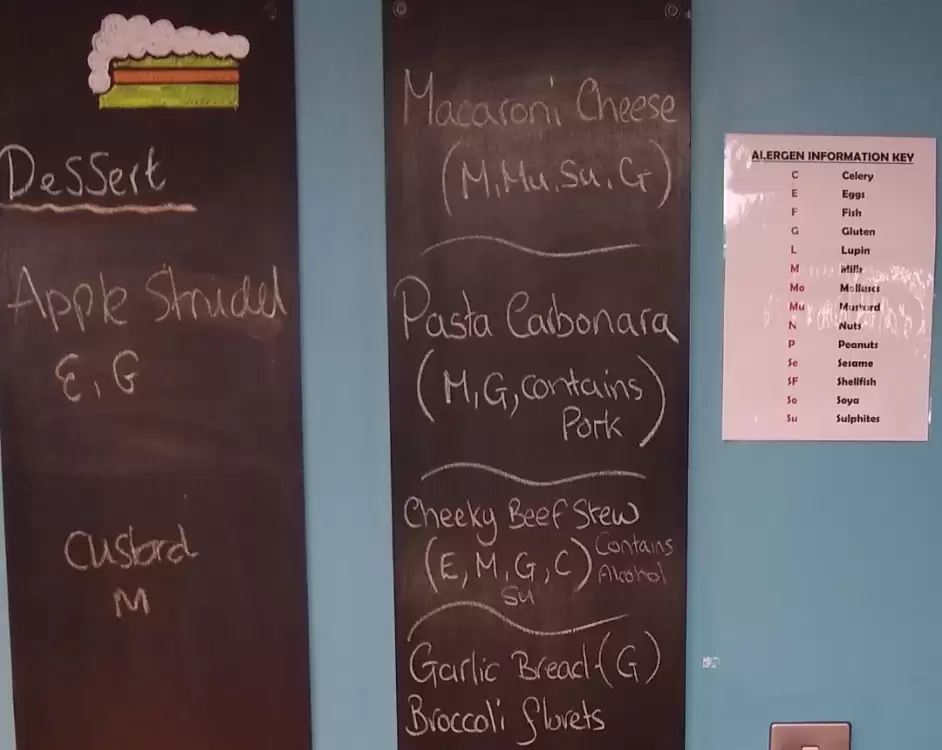 Dessert
Apple Strudel
E, G
Custard
M
Macaroni Cheese
(M, Mu, Su, G)
Pasta Carbonara
(M, G, contains
Pork)
Cheeky Beef Stew
(E, M, G, C) Contains
Su Alcohol
Garlic Bread (G)
Broccoli florets
ALERGEN INFORMATION KEY
C Celery
E Eggs
F Fish
G Gluten
L Lupin
M Milk
Mo Molluscs
Mu Mustard
N Nuts
P Peanuts
Se Sesame
SF Shellfish
So Soya
Su Sulphites